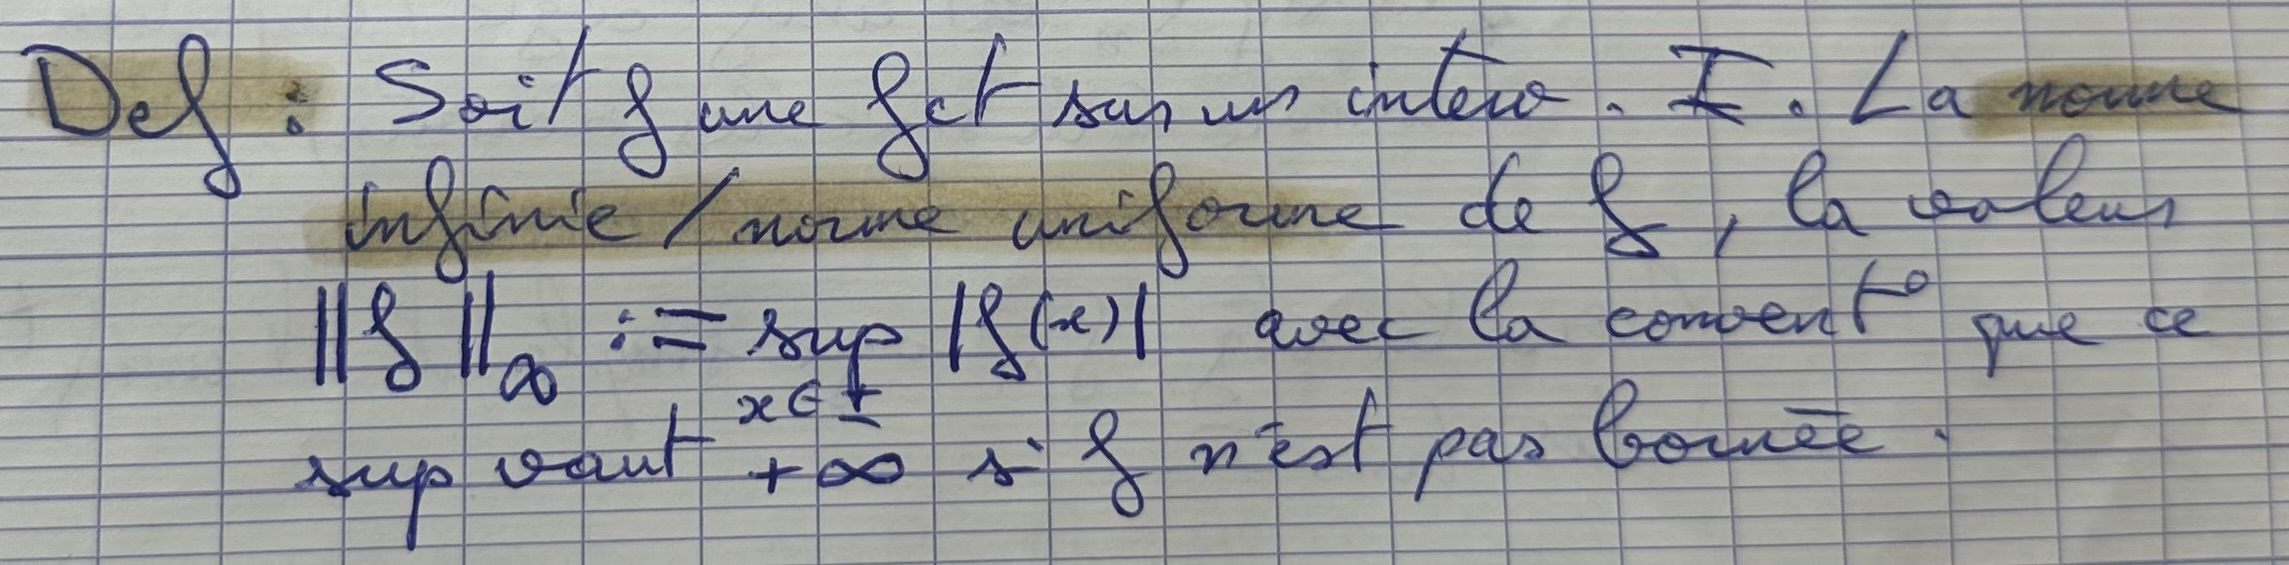 Def : Soit f une fct sur un interv. I. La norme
infinie / norme uniforme de f, la valeur
||f||∞ := sup |f(x)| avec la convent° que ce
x∈I
sup vaut +∞ si f n'est pas bornée.